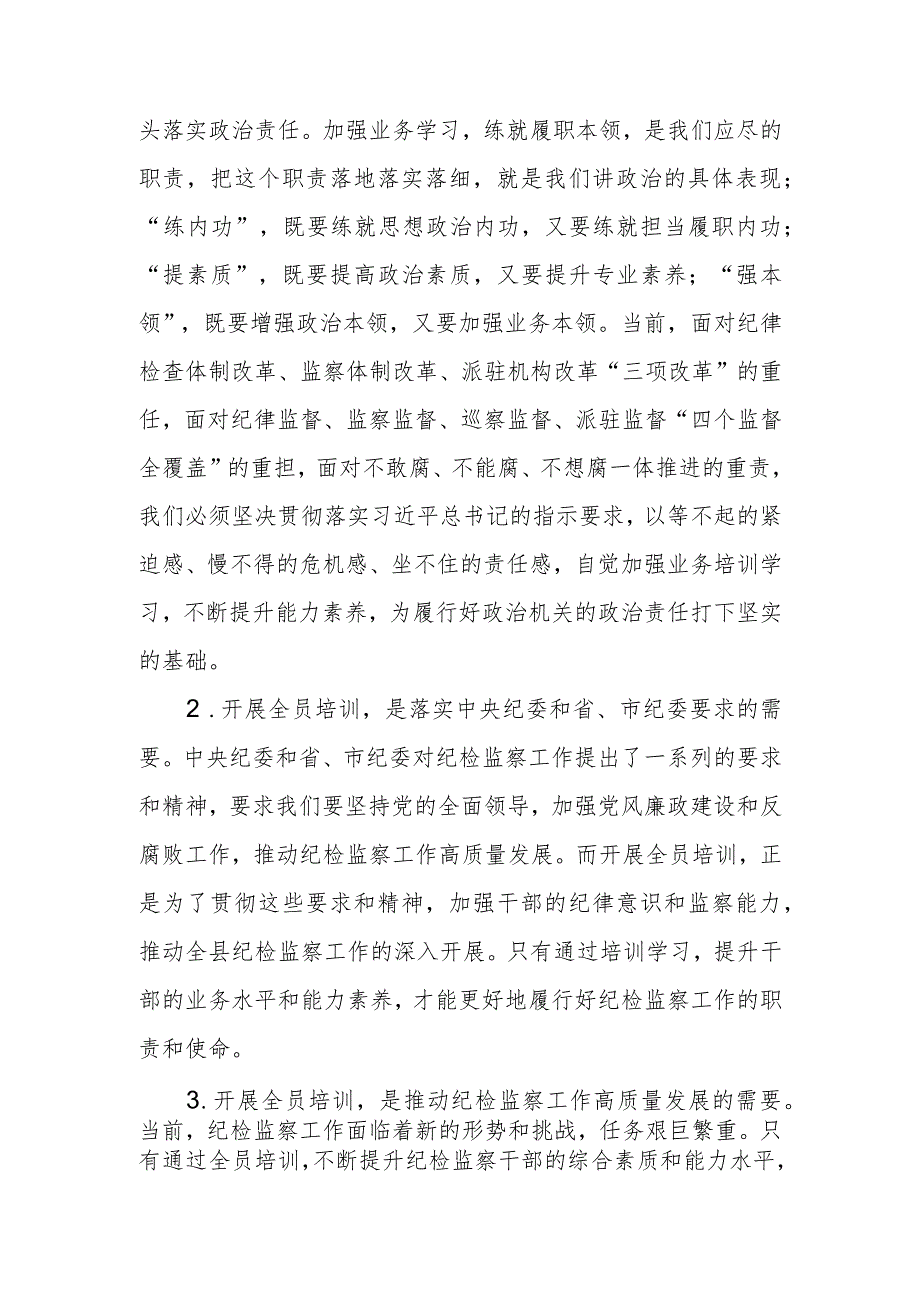 头落实政治责任。加强业务学习，练就履职本领，是我们应尽的
职责，把这个职责落地落实落细，就是我们讲政治的具体表现；
“练内功”，既要练就思想政治内功，又要练就担当履职内功；
“提素质”，既要提高政治素质，又要提升专业素养；“强本
领”，既要增强政治本领，又要加强业务本领。当前，面对纪律
检查体制改革、监察体制改革、派驻机构改革“三项改革”的重
任，面对纪律监督、监察监督、巡察监督、派驻监督“四个监督
全覆盖”的重担，面对不敢腐、不能腐、不想腐一体推进的重责，
我们必须坚决贯彻落实习近平总书记的指示要求，以等不起的紧
迫感、慢不得的危机感、坐不住的责任感，自觉加强业务培训学
习，不断提升能力素养，为履行好政治机关的政治责任打下坚实
的基础。
2 .开展全员培训，是落实中央纪委和省、市纪委要求的需
要。中央纪委和省、市纪委对纪检监察工作提出了一系列的要求
和精神，要求我们要坚持党的全面领导，加强党风廉政建设和反
腐败工作，推动纪检监察工作高质量发展。而开展全员培训，正
是为了贯彻这些要求和精神，加强干部的纪律意识和监察能力，
推动全县纪检监察工作的深入开展。只有通过培训学习，提升干
部的业务水平和能力素养，才能更好地履行好纪检监察工作的职
责和使命。
3.开展全员培训，是推动纪检监察工作高质量发展的需要。
当前，纪检监察工作面临着新的形势和挑战，任务艰巨繁重。只
有通过全员培训，不断提升纪检监察干部的综合素质和能力水平，